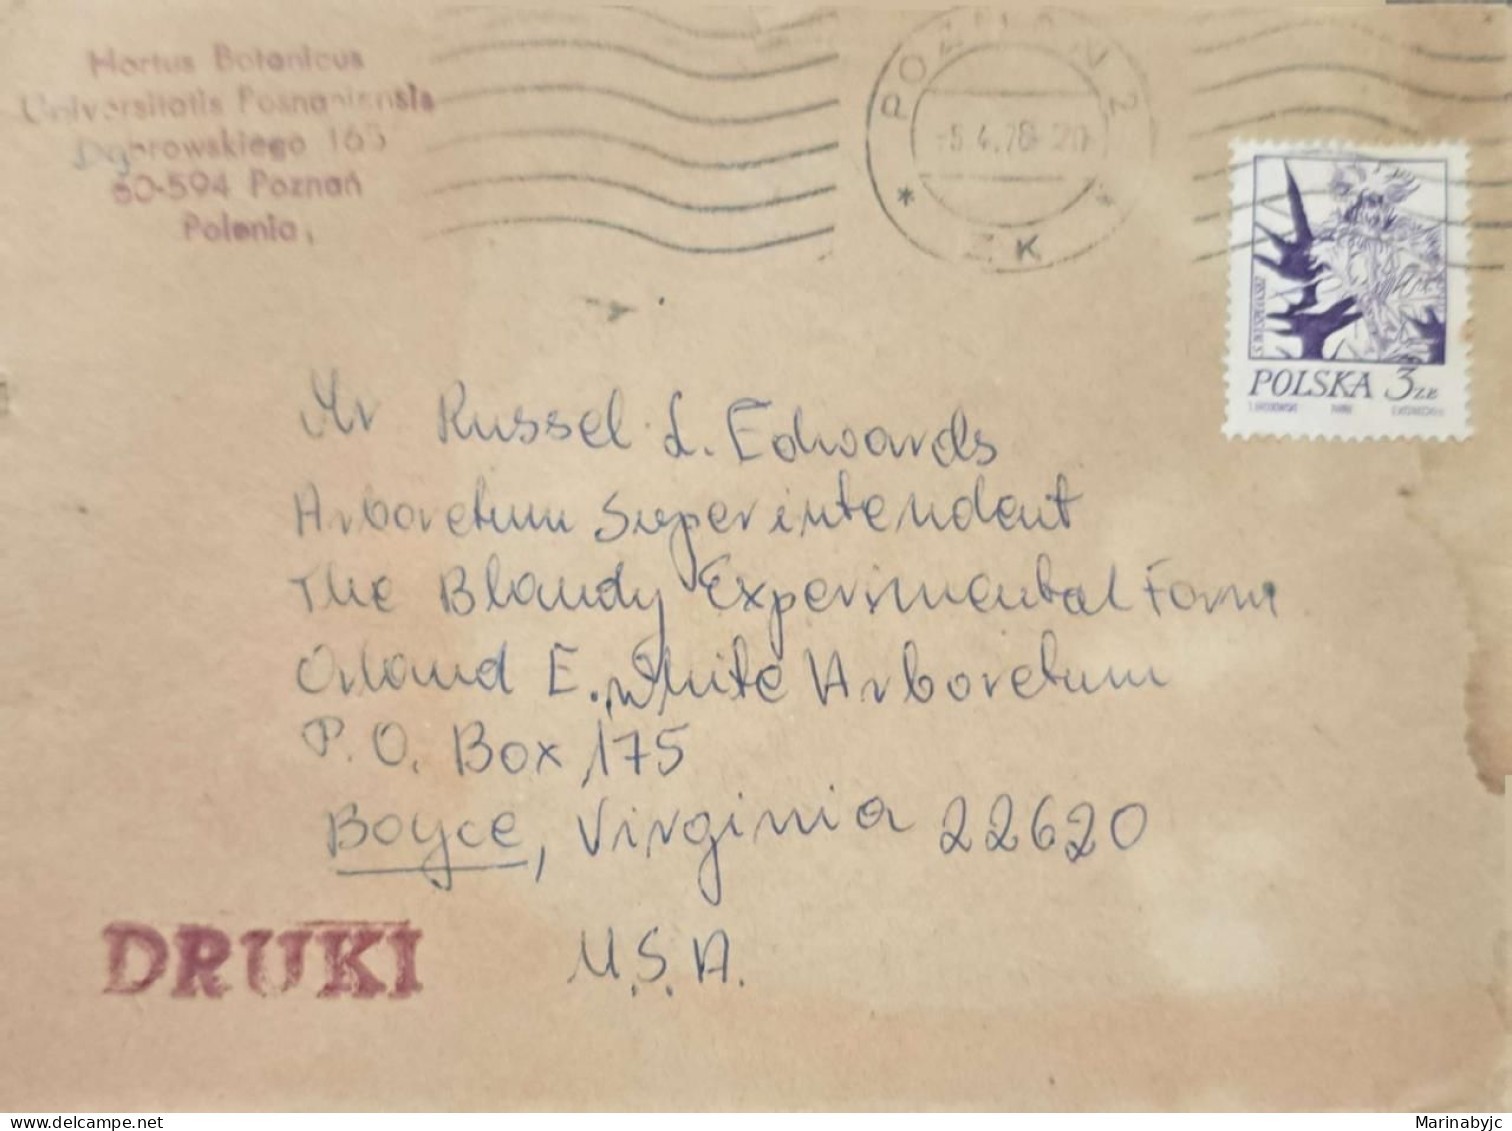 Hortus Botanicus
Universitatis Posnaniensis
Dąbrowskiego 165
60-594 Poznań
Polonia
POZNAŃ 2
-5.4.78-20
* *
ZK
POLSKA 3 ZŁ
Mr Russel L. Edwards
Arboretum Superintendent
The Blandy Experimental Farm
Orland E. White Arboretum
P.O. Box 175
Boyce, Virginia 22620
U.S.A.
DRUKI
Marinabyjc